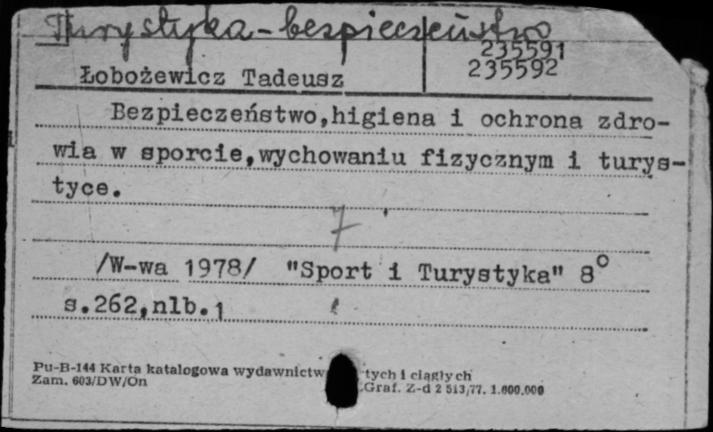 Turystyka-bezpieczeństwo
235591
235592
Łobożewicz Tadeusz
Bezpieczeństwo,higiena i ochrona zdro-
wia w sporcie,wychowaniu fizycznym i turys-
tyce.
7
/W-wa 1978/ "Sport i Turystyka" 8°
s.262,nlb.1
Pu-B-144 Karta katalogowa wydawnictw tych i ciągłych
Zam. 603/DW/On Graf. Z-d 2 513/77. 1.600.000